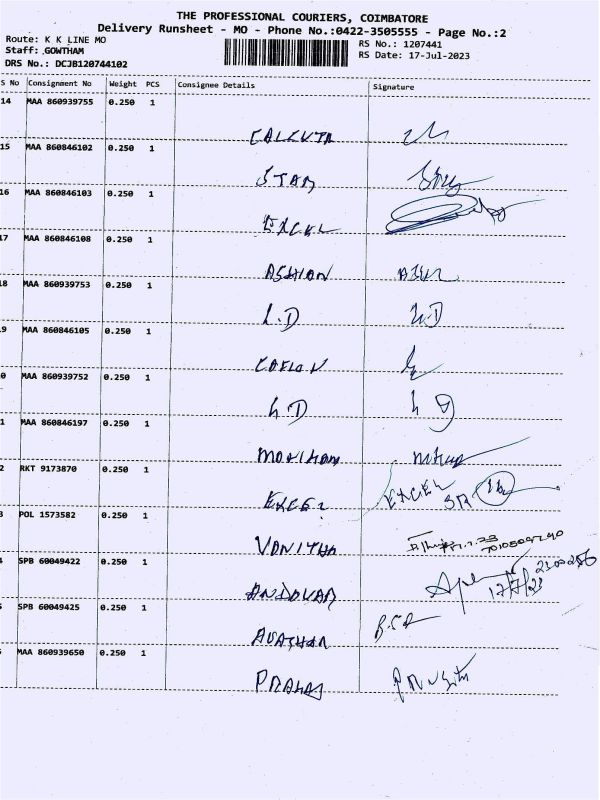 THE PROFESSIONAL COURIERS, COIMBATORE
Delivery Runsheet - MO - Phone No.:0422-3505555 - Page No.:2
Route: K K LINE MO
RS No.: 1207441
Staff: GOWTHAM
RS Date: 17-Jul-2023
DRS No.: DCJB120744102
S No Consignment No Weight PCS Consignee Details Signature
14 MAA 860939755 0.250 1
CALCUTA
15 MAA 860846102 0.250 1
STAR
16 MAA 860846103 0.250 1
EXCEL
17 MAA 860846108 0.250 1
ASHION
18 MAA 860939753 0.250 1
L.D L.D
9 MAA 860846105 0.250 1
0 MAA 860939752 0.250 1
L.D L D
1 MAA 860846197 0.250 1
2 RKT 9173870 0.250 1
EXCEL EXCEL
3 POL 1573582 0.250 1
VANITHA
4 SPB 60049422 0.250 1
ANDAVAR 17/7/23
5 SPB 60049425 0.250 1
MAA 860939650 0.250 1